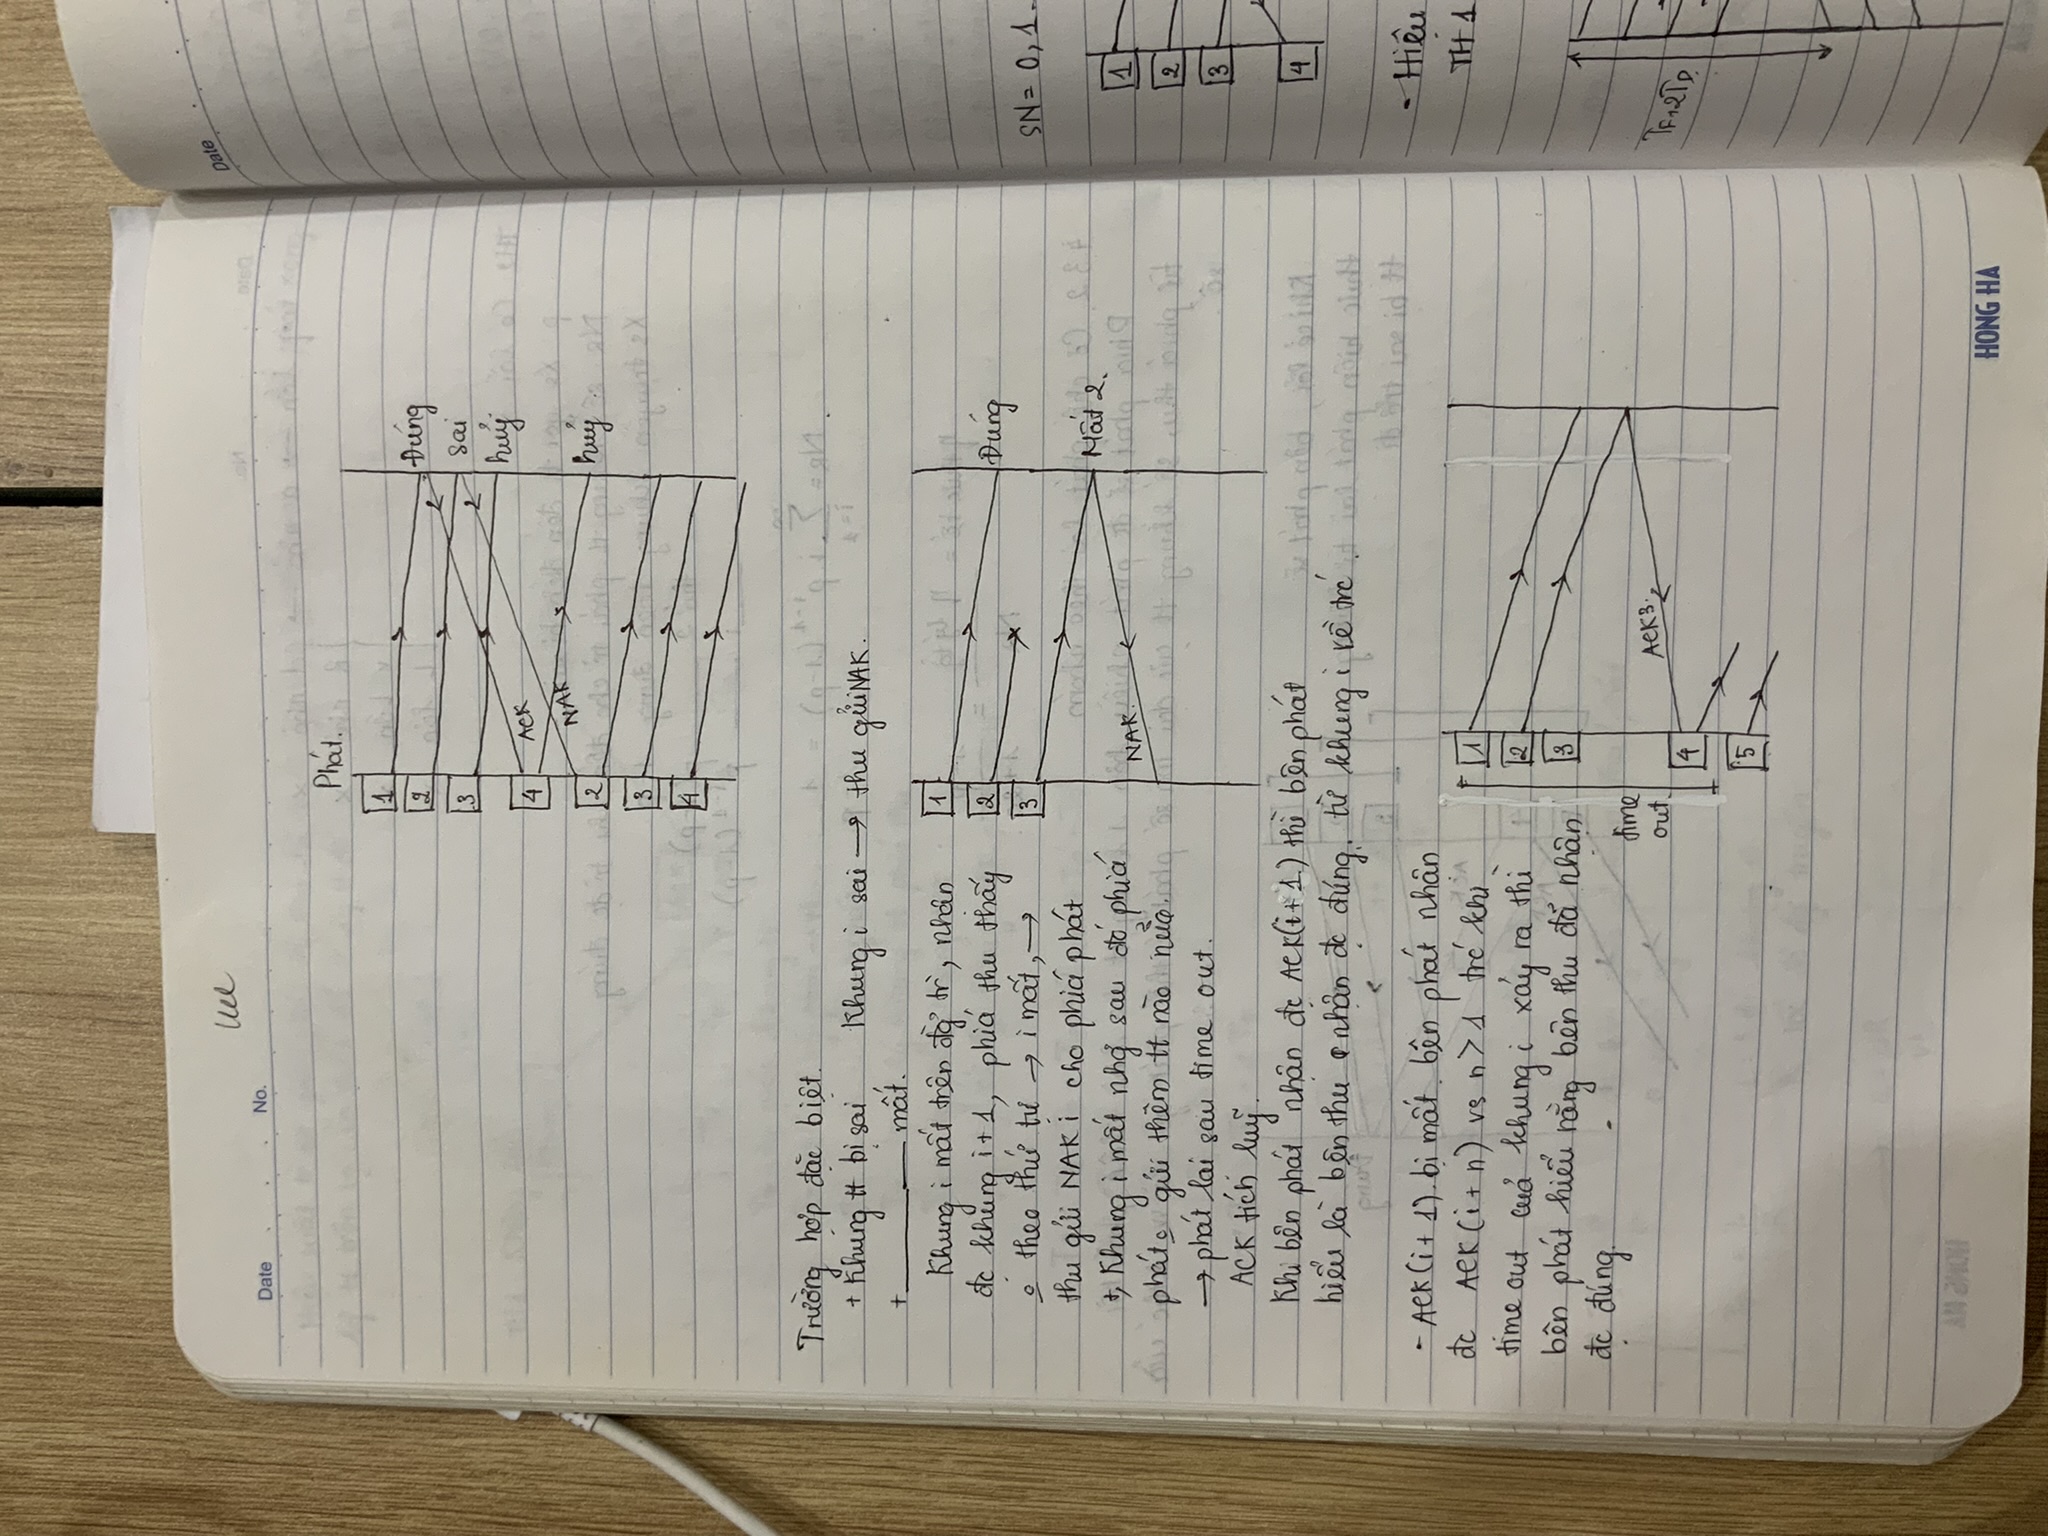 Date . . . No.
Phát.
1
2
3
4
2
3
4
Đúng
sai
huỷ
huỷ
ACK
NAK
Trường hợp đặc biệt.
+ Khung tt bị sai Khung i sai → thu gửi NAK.
+ ——— mất.
Khung i mất trên đg tr`, nhân
đc khung i+1, phiá thu thấy
o theo thứ tự → i mất, →
thu gửi NAK i cho phiá phát
+, Khung i mất nhg sau đó phiá
phát o gửi thêm tt nào nữa.
→ phát lại sau time out.
1
2
3
Đúng
Mất 2.
NAK.
ACK tích luỹ.
Khi bên phát nhận đc ACK(i+1) thì bên phát
hiểu là bên thu nhận đc đúng. từ khung i về trc
- ACK(i+1) bị mất bên phát nhận
đc ACK(i+n) vs n>1 trc khi
time out của khung i xảy ra thì
bên phát hiểu rằng bên thu đã nhận
đc đúng.
time
out
1
2
3
4
5
ACK3.
HONG HA
Date
SN = 0, 1.
1
2
3
4
- Hiệu
TH 1
TF+2TD